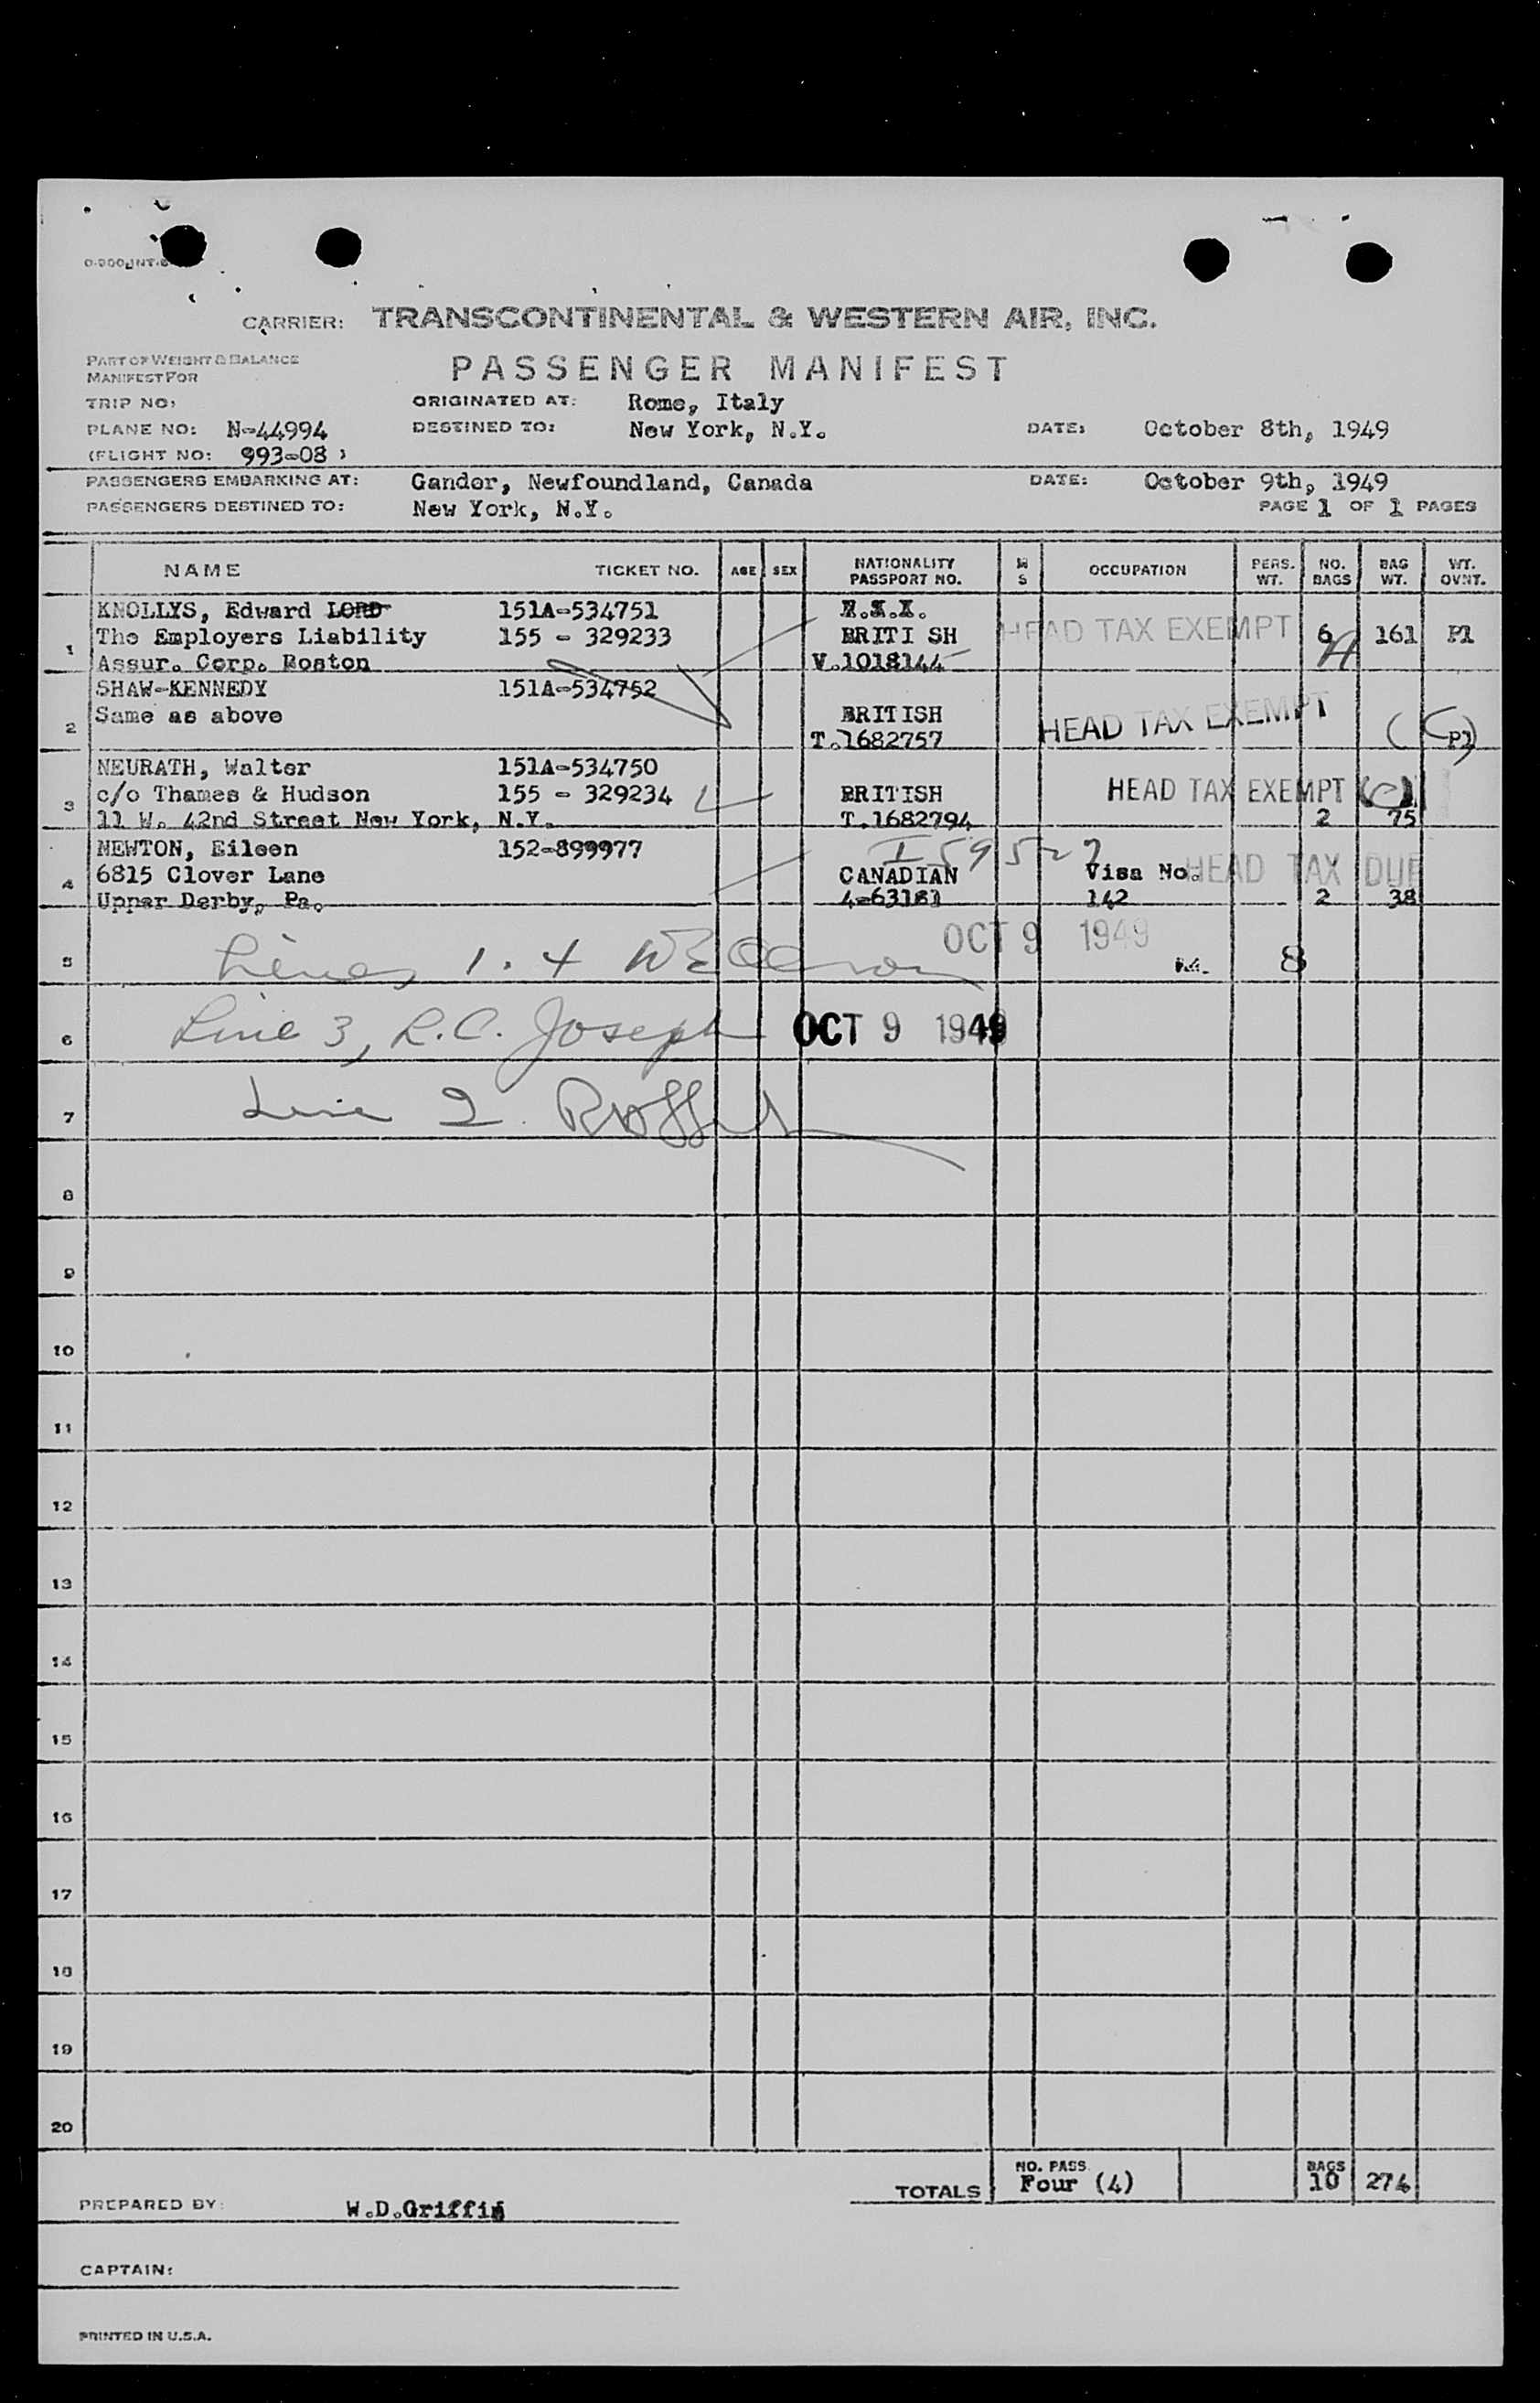 CARRIER: TRANSCONTINENTAL & WESTERN AIR, INC.
PART OF WEIGHT & BALANCE
MANIFEST FOR
PASSENGER MANIFEST
TRIP NO: ORIGINATED AT: Rome, Italy
PLANE NO: N-44994 DESTINED TO: New York, N.Y. DATE: October 8th, 1949
(FLIGHT NO: 993-08 )
PASSENGERS EMBARKING AT: Gander, Newfoundland, Canada DATE: October 9th, 1949
PASSENGERS DESTINED TO: New York, N.Y. PAGE 1 OF 1 PAGES
NAME TICKET NO. AGE SEX NATIONALITY PASSPORT NO. M S OCCUPATION PERS. WT. NO. BAGS BAG WT. WT. OVNT.
KNOLLYS, Edward LORD 151A-534751
1 The Employers Liability 155 - 329233 BRITI SH HEAD TAX EXEMPT 6 161 P1
Assur. Corp. Boston V.1018144
SHAW-KENNEDY 151A-534752
2 Same as above BRITISH HEAD TAX EXEMPT
T.1682757 P1
NEURATH, Walter 151A-534750
3 c/o Thames & Hudson 155 - 329234 BRITISH HEAD TAX EXEMPT
11 W. 42nd Street New York, N.Y. T.1682794 2 75
NEWTON, Eileen 152-899977 I 59527
4 6815 Clover Lane CANADIAN Visa No. HEAD TAX DUE
Upper Derby, Pa. 4-63161 142 2 38
OCT 9 1949
5 Lines 1. 4 8
6 Line 3, R.C. Joseph OCT 9 1949
7 Line 2.
8
9
10
11
12
13
14
15
16
17
18
19
20
TOTALS NO. PASS. Four (4) BAGS 10 274
PREPARED BY: W.D.Griffin
CAPTAIN:
PRINTED IN U.S.A.